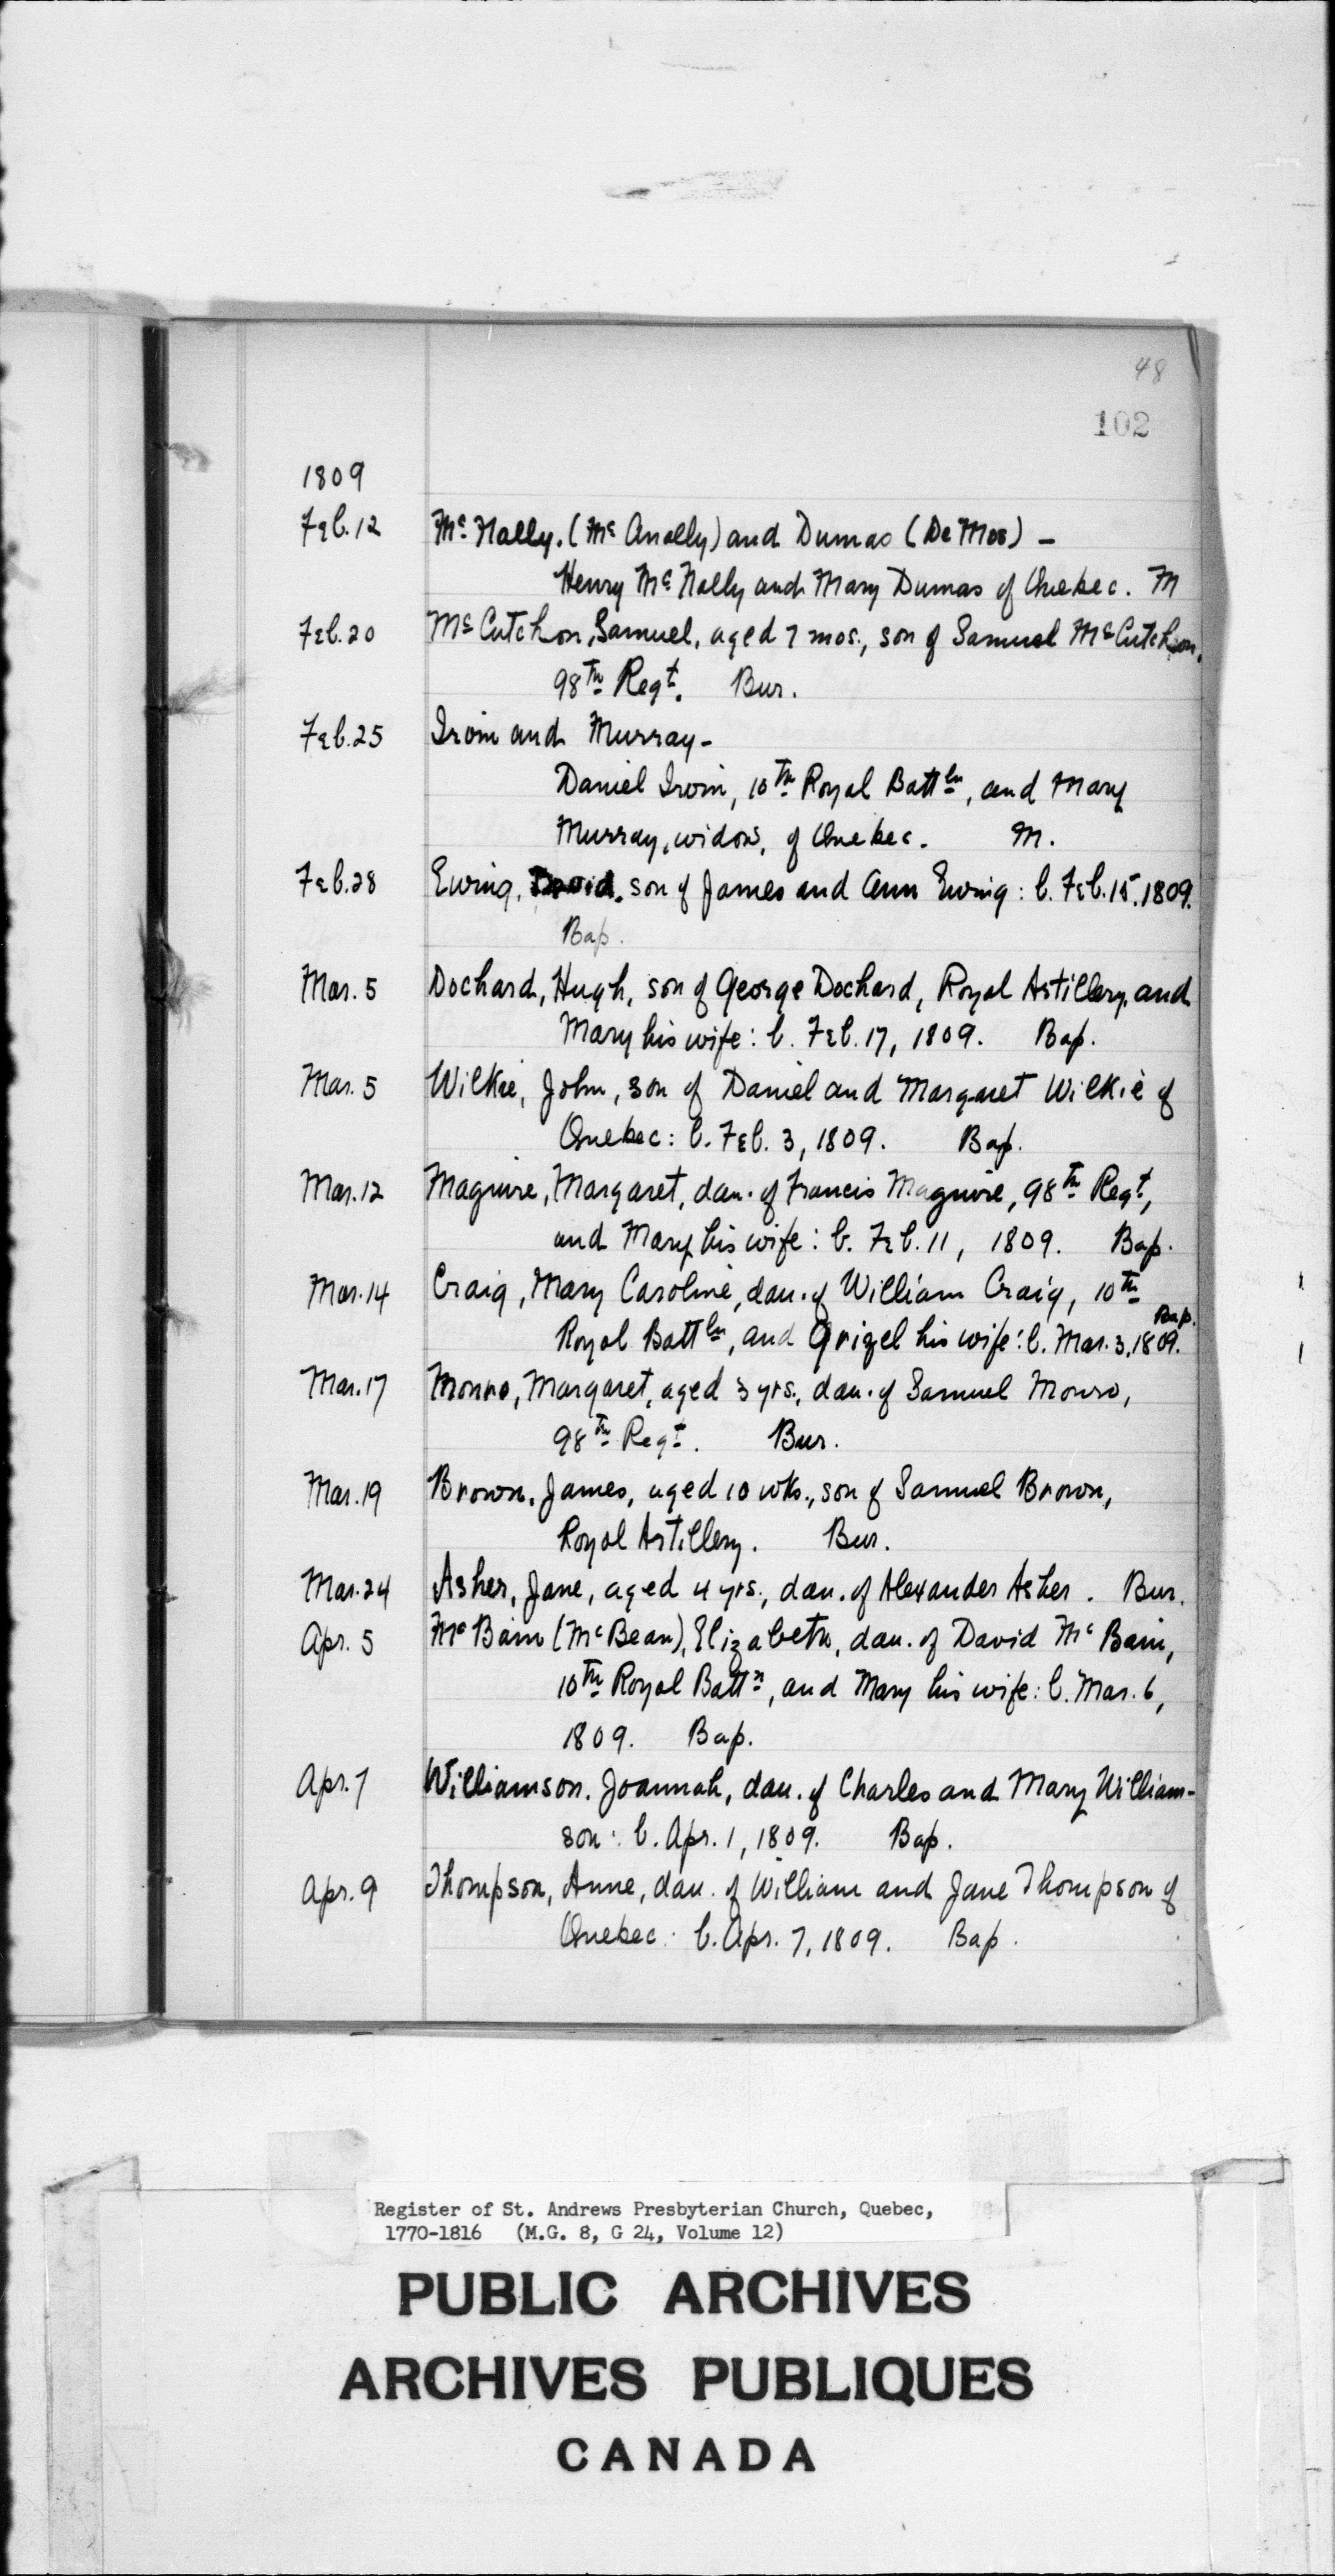 48
102
1809
Feb. 12 Mc Nally. (Mc Anally) and Dumas (De Mos) -
Henry Mc Nally and Mary Dumas of Quebec. M
Feb. 20 Mc Cutchon, Samuel, aged 7 mos., son of Samuel Mc Cutcheon,
98th Regt. Bur.
Feb. 25 Irvin and Murray -
Daniel Irvin, 10th Royal Battln, and Mary
Murray, widow, of Quebec. M.
Feb. 28 Ewing, David, son of James and Ann Ewing: b. Feb. 15, 1809.
Bap.
Mar. 5 Dochard, Hugh, son of George Dochard, Royal Artillery, and
Mary his wife: b. Feb. 17, 1809. Bap.
Mar. 5 Wilkie, John, son of Daniel and Margaret Wilkie of
Quebec: b. Feb. 3, 1809. Bap.
Mar. 12 Maguire, Margaret, dau. of Francis Maguire, 98th Regt,
and Mary his wife: b. Feb. 11, 1809. Bap.
Mar. 14 Craig, Mary Caroline, dau. of William Craig, 10th
Royal Battln, and Grizel his wife: b. Mar. 3, 1809. Bap.
Mar. 17 Monro, Margaret, aged 3 yrs., dau. of Samuel Monro,
98th Regt. Bur.
Mar. 19 Brown, James, aged 10 wks., son of Samuel Brown,
Royal Artillery. Bur.
Mar. 24 Asher, Jane, aged 4 yrs., dau. of Alexander Asher. Bur.
Apr. 5 Mc Bain (Mc Bean), Elizabeth, dau. of David Mc Bain,
10th Royal Battn, and Mary his wife: b. Mar. 6,
1809. Bap.
Apr. 7 Williamson, Joannah, dau. of Charles and Mary William-
son: b. Apr. 1, 1809. Bap.
Apr. 9 Thompson, Anne, dau. of William and Jane Thompson of
Quebec: b. Apr. 7, 1809. Bap.
Register of St. Andrews Presbyterian Church, Quebec,
1770-1816 (M.G. 8, G 24, Volume 12)
PUBLIC ARCHIVES
ARCHIVES PUBLIQUES
CANADA